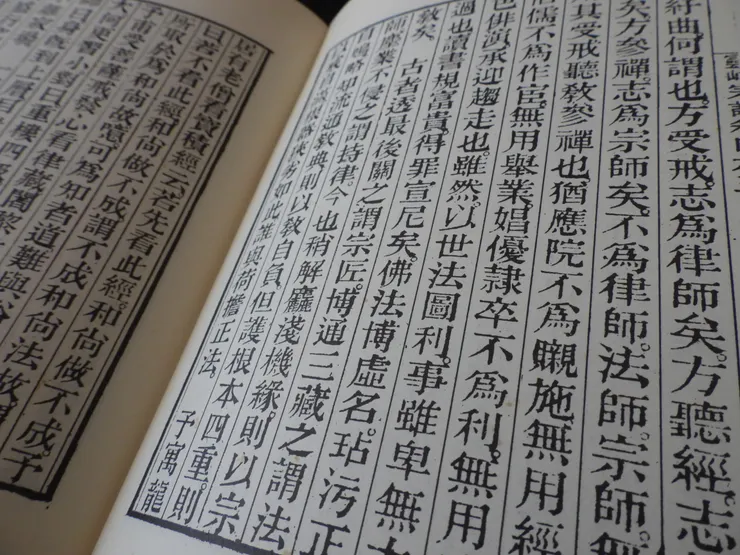 紆曲何謂也。方受戒志爲律師矣。方聽經志
矣。方參禪志爲宗師矣。不爲律師。法師。宗師。
其受戒聽教參禪也。猶應院不爲瞡施無用經
儒不爲作宦。無用舉業。娼優隷卒不爲利。無用
也俳演承迎趨走也。雖然。以世法圖利。事雖卑無
過也。讀書規富貴。得罪宣尼矣。佛法博虛名玷污正
教矣。 古者透最後關之謂宗匠。博通三藏之謂法
師。嚴業不侵之謂持律。今也稍解麤淺機緣。則以宗
略知流通教典則以教自負。但護根本四重。則
如此誰與荷擔正法。 予寓龍
居有老僧看寶積經云若先看此經和尚做不成。予
曰若不看此經和尚做不成謂不成和尚法故
爲和尚故 可爲知者道難與俗
子宙受菩薩戒發心看律藏闍黎
更習小對曰重樓四級